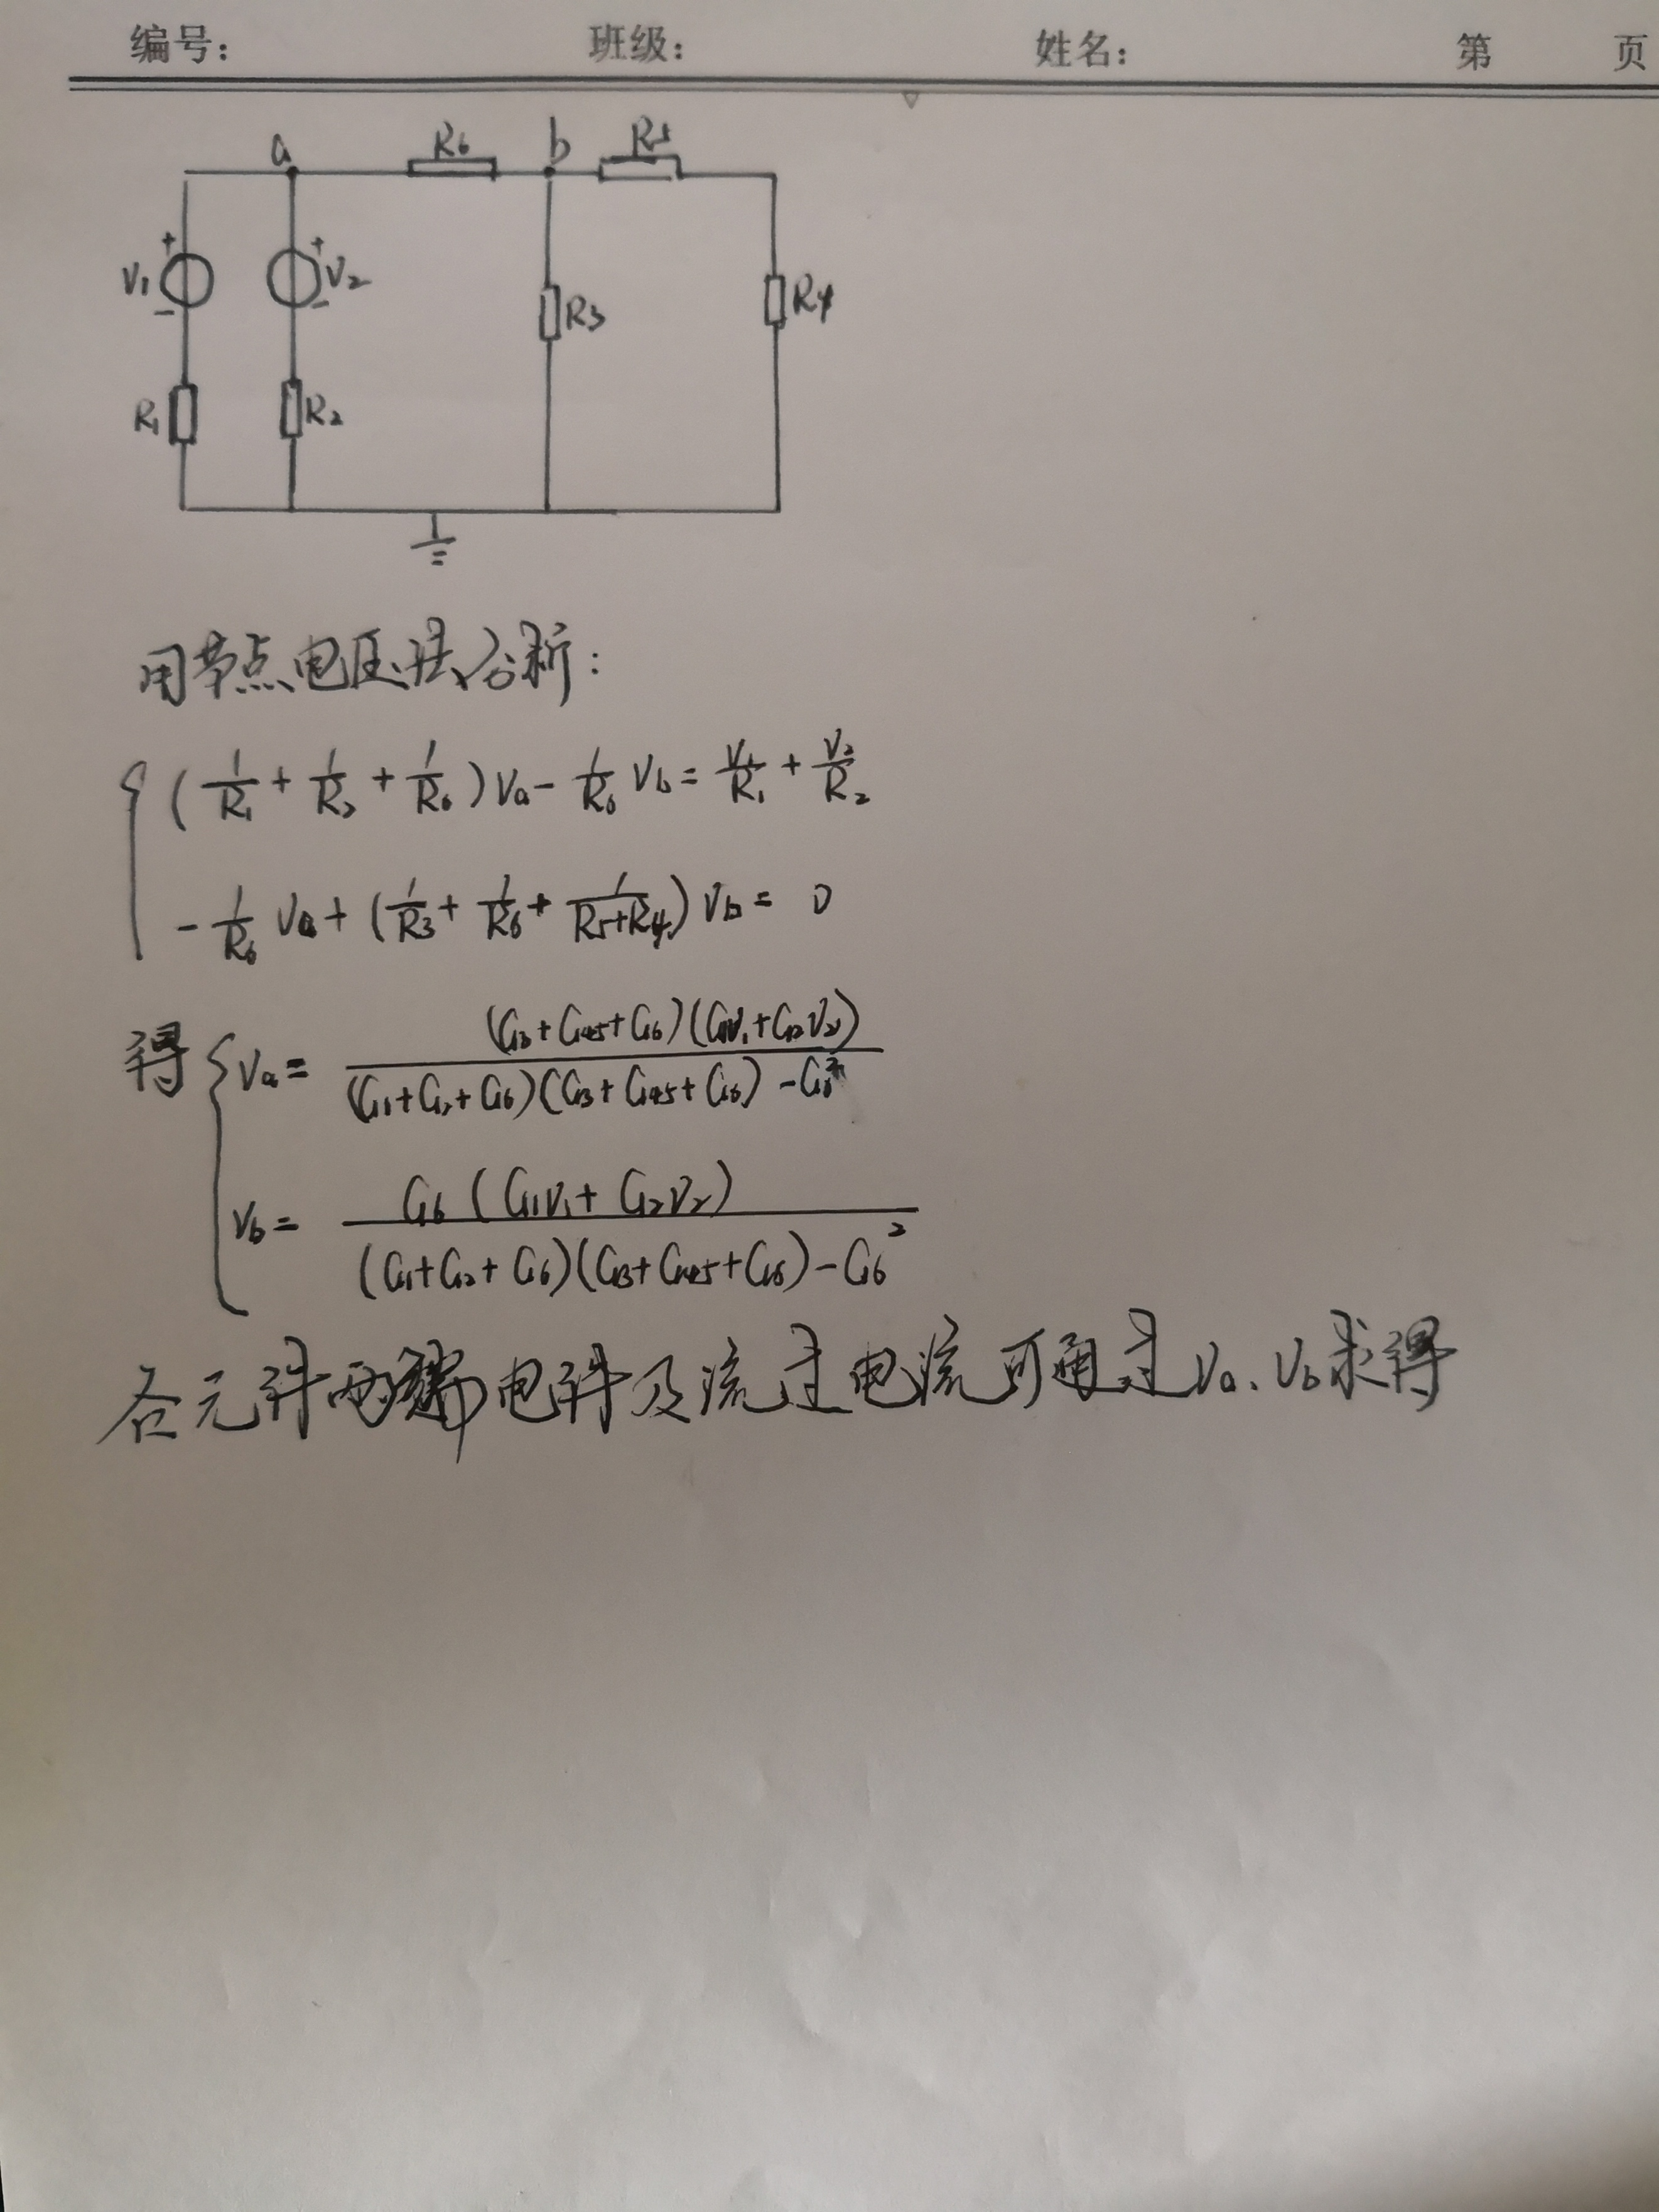 编号: 班级: 姓名: 第 页
a R6 b R5
+ +
V1 V2 R3 R4
- -
R1 R2
用节点电压法分析:
(1/R1 + 1/R2 + 1/R6)Va - 1/R6 Vb = V1/R1 + V2/R2
- 1/R6 Va + (1/R3 + 1/R6 + 1/(R5+R4)) Vb = 0
得 Va = (G3+G45+G6)(G1V1+G2V2) / ((G1+G2+G6)(G3+G45+G6) - G6²)
Vb = G6(G1V1+G2V2) / ((G1+G2+G6)(G3+G45+G6) - G6²)
各元件两端电件及流过电流可通过Va、Vb求得